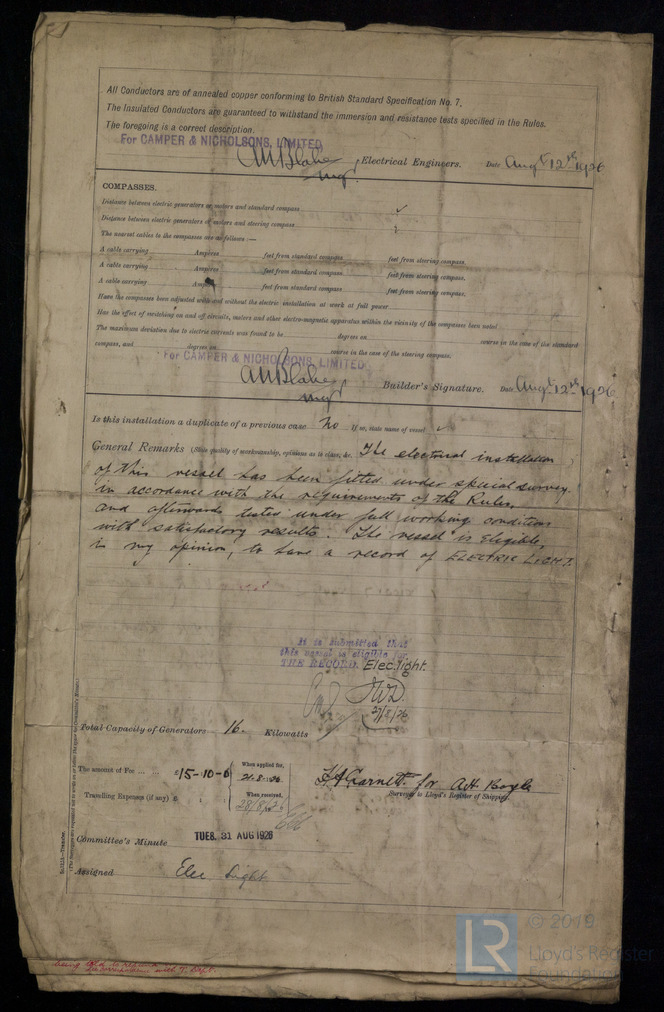 All Conductors are of annealed copper conforming to British Standard Specification No. 7.
The Insulated Conductors are guaranteed to withstand the immersion and resistance tests specified in the Rules.
The foregoing is a correct description.
For CAMPER & NICHOLSONS, LIMITED
AMBlake Electrical Engineers. Date Augt 12th 1926
Mngr
COMPASSES.
Distance between electric generators or motors and standard compass
Distance between electric generators or motors and steering compass
The nearest cables to the compasses are as follows:—
A cable carrying Amperes feet from standard compass feet from steering compass.
A cable carrying Amperes feet from standard compass feet from steering compass.
A cable carrying Amperes feet from standard compass feet from steering compass.
Have the compasses been adjusted with and without the electric installation at work at full power
Has the effect of switching on and off circuits, motors and other electro-magnetic apparatus within the vicinity of the compasses been noted
The maximum deviation due to electric currents was found to be degrees on course in the case of the standard
compass, and degrees on course in the case of the steering compass.
For CAMPER & NICHOLSONS, LIMITED.
AMBlake Builder's Signature. Date Augt 12th 1926
Mngr
Is this installation a duplicate of a previous case No If so, state name of vessel
General Remarks (State quality of workmanship, opinions as to class, &c. The electrical installation
of this vessel has been fitted under special survey
in accordance with the requirements of the Rules,
and afterwards tested under full working conditions
with satisfactory results. The vessel is eligible,
in my opinion, to have a record of ELECTRIC LIGHT.
It is submitted that
this vessel is eligible for
THE RECORD. Elec. light.
JWD.
27/8/26
Total Capacity of Generators 16. Kilowatts
The amount of Fee ... ... £15-10-0 When applied for, 21.8.26
Travelling Expenses (if any) £ : : When received, 28/8/26
FAGarnett for A.H. Boyle
Surveyor to Lloyd's Register of Shipping.
Committee's Minute TUES. 31 AUG 1926
Assigned Elec Light
© 2019
LR Lloyd's Register
Foundation